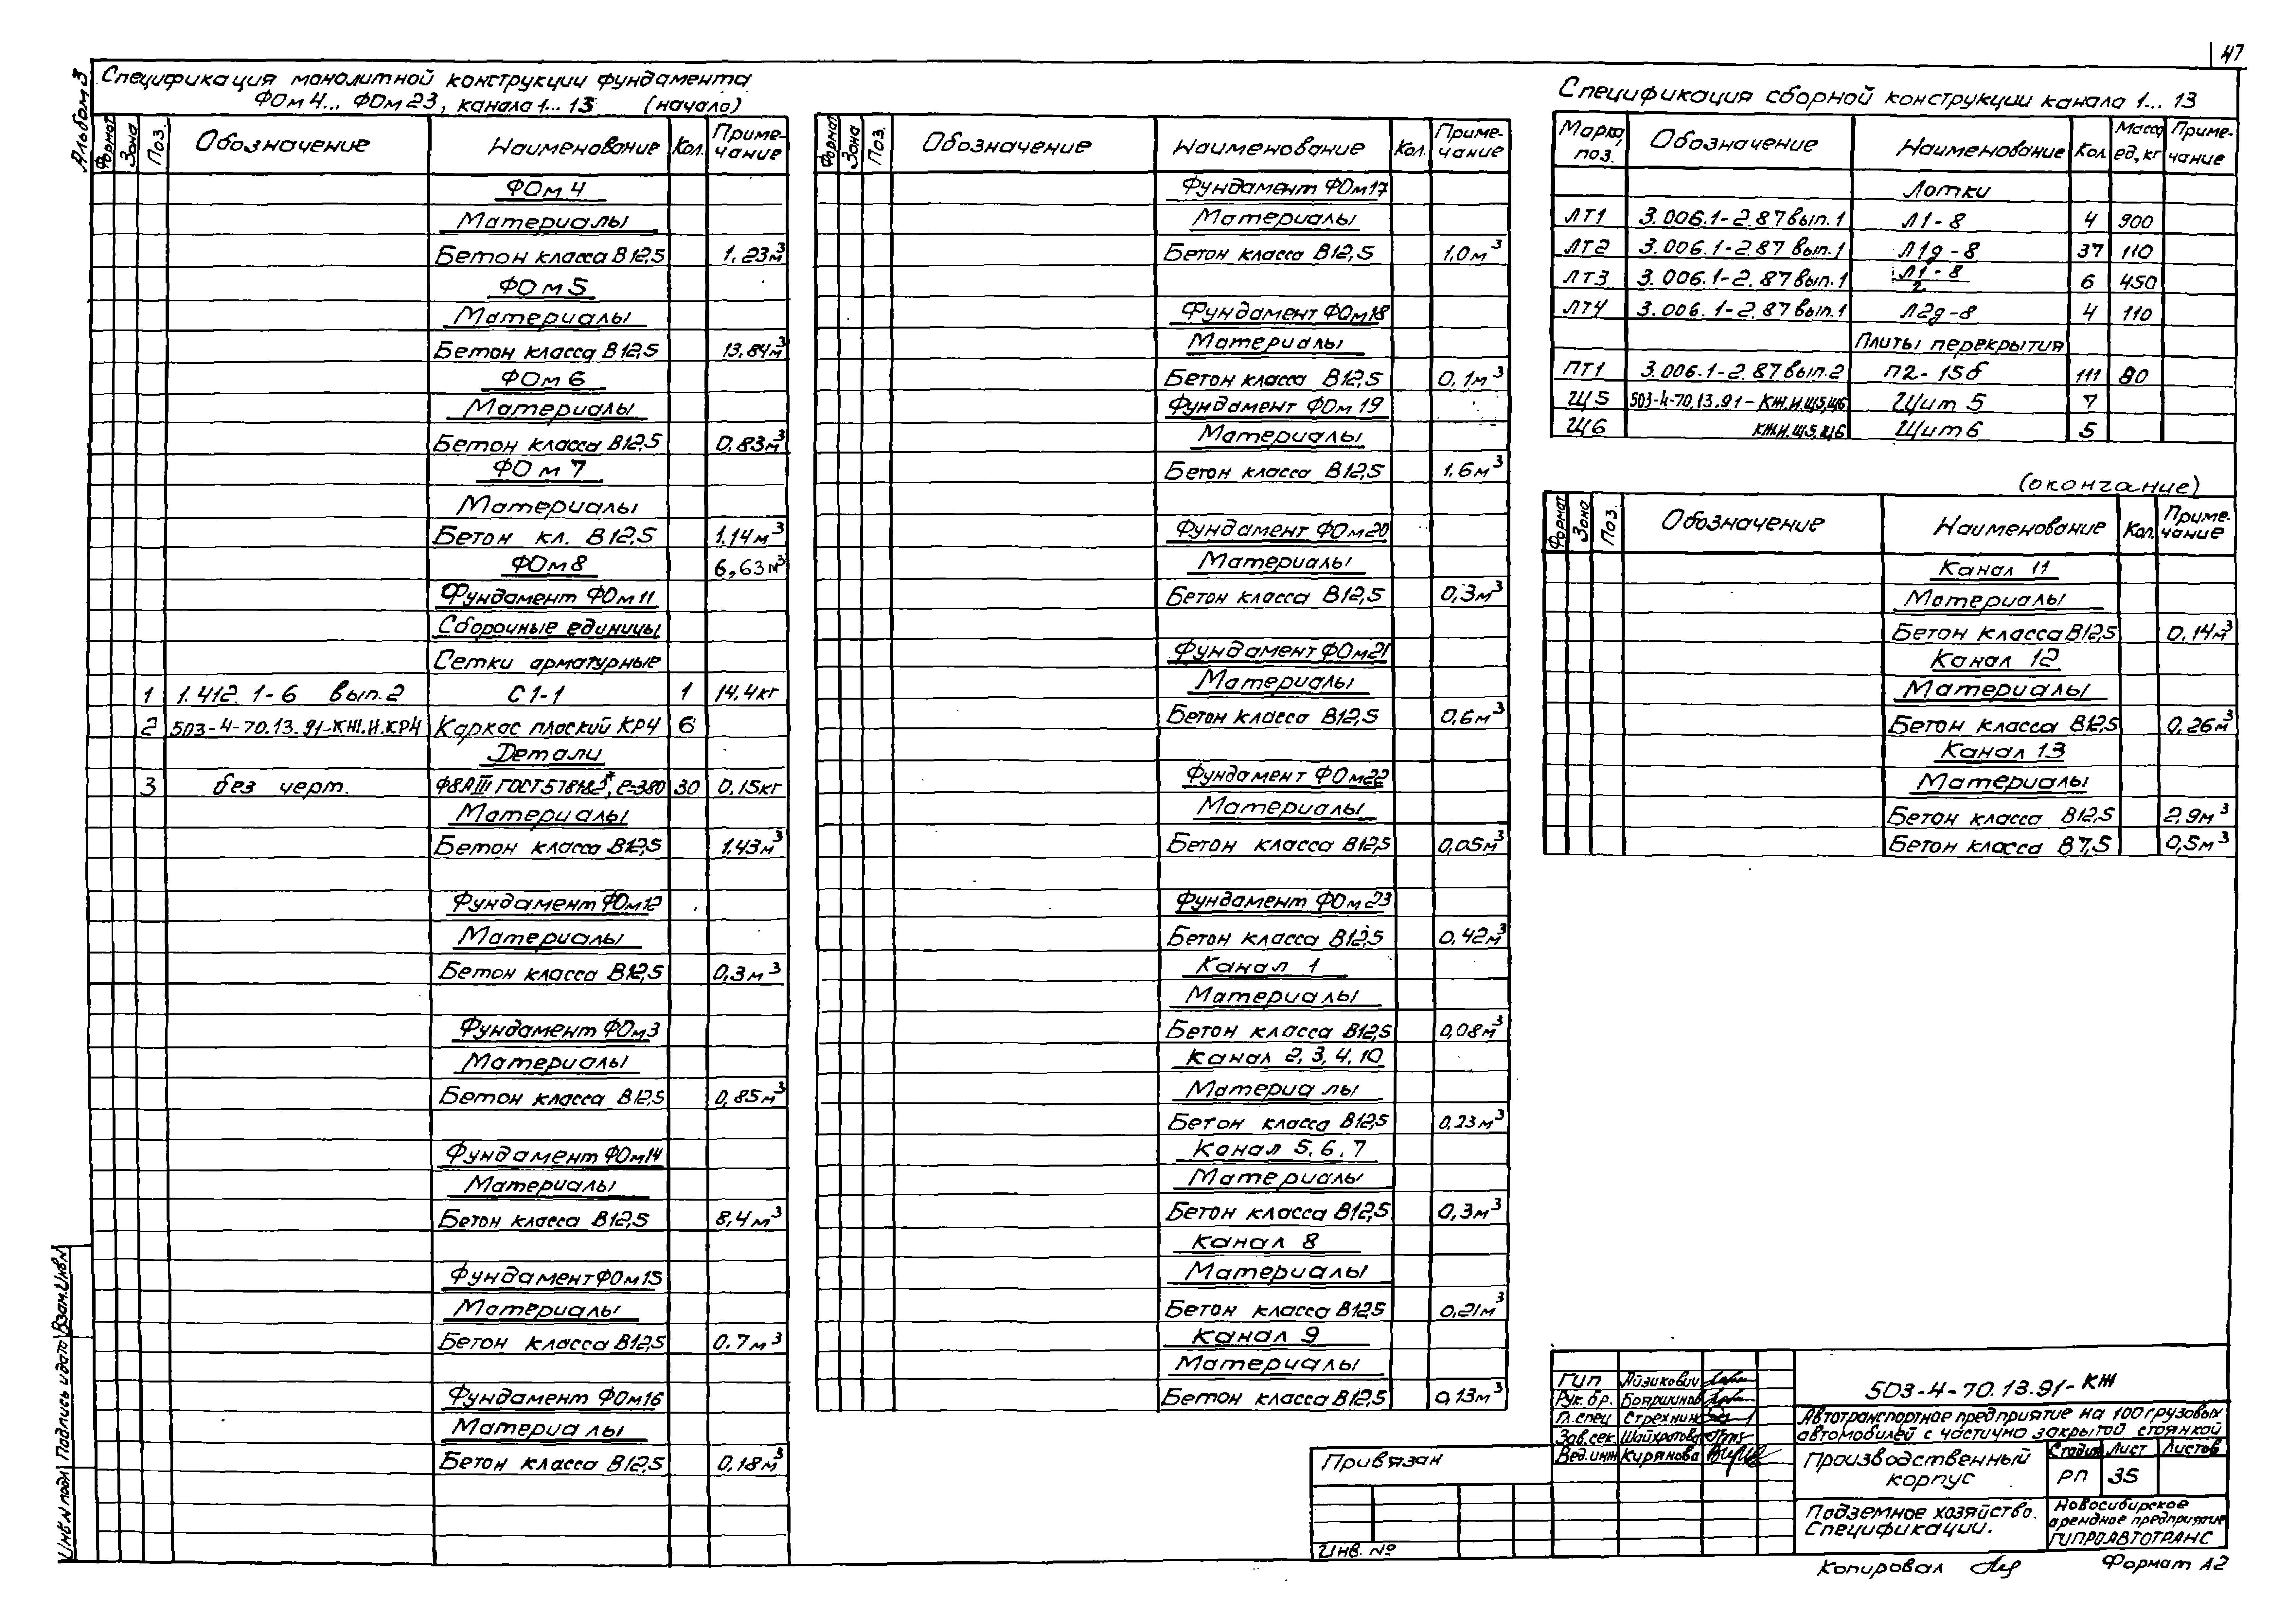 47
Альбом 3
Спецификация монолитной конструкции фундамента
ФОм 4... ФОм 23, канала 1... 13 (начало)
Формат Зона Поз. Обозначение Наименование Кол. Приме-
чание
ФОм 4
Материалы
Бетон класса В12,5 1.23м³
ФОм 5
Материалы
Бетон класса В12,5 13,84м³
ФОм 6
Материалы
Бетон класса В12,5 0.83м³
ФОм 7
Материалы
Бетон кл. В12,5 1.14м³
ФОм 8 6,63м³
Фундамент ФОм 11
Сборочные единицы
Сетки арматурные
1 1.412.1-6 вып.2 С1-1 1 14,4кг
2 503-4-70.13.91-КЖ.И.КР4 Каркас плоский КР4 6
Детали
3 без черт. Ф8АIII ГОСТ5781-82*, ℓ=380 30 0,15кг
Материалы
Бетон класса В12,5 1,43м³
Фундамент ФОм12
Материалы
Бетон класса В12,5 0,3м³
Фундамент ФОм3
Материалы
Бетон класса В12,5 0,85м³
Фундамент ФОм14
Материалы
Бетон класса В12,5 8,4м³
Фундамент ФОм15
Материалы
Бетон класса В12,5 0.7м³
Фундамент ФОм16
Материалы
Бетон класса В12,5 0,18м³
Формат Зона Поз. Обозначение Наименование Кол. Приме-
чание
Фундамент ФОм17
Материалы
Бетон класса В12,5 1,0м³
Фундамент ФОм18
Материалы
Бетон класса В12,5 0,1м³
Фундамент ФОм 19
Материалы
Бетон класса В12,5 1.6м³
Фундамент ФОм20
Материалы
Бетон класса В12,5 0,3м³
Фундамент ФОм21
Материалы
Бетон класса В12,5 0,6м³
Фундамент ФОм22
Материалы
Бетон класса В12,5 0,05м³
Фундамент ФОм23
Бетон класса В12,5 0,42м³
Канал 1
Материалы
Бетон класса В12,5 0,08м³
Канал 2, 3, 4, 10
Материалы
Бетон класса В12,5 0,23м³
Канал 5, 6, 7
Материалы
Бетон класса В12,5 0,3м³
Канал 8
Материалы
Бетон класса В12,5 0,21м³
Канал 9
Материалы
Бетон класса В12,5 0,13м³
Спецификация сборной конструкции канала 1... 13
Марка, поз. Обозначение Наименование Кол. Масса ед, кг Приме-
чание
Лотки
ЛТ1 3.006.1-2.87 вып.1 Л1-8 4 900
ЛТ2 3.006.1-2.87 вып.1 Л1д-8 37 110
ЛТ3 3.006.1-2.87 вып.1 Л1-8/2 6 450
ЛТ4 3.006.1-2.87 вып.1 Л2д-8 4 110
Плиты перекрытия
ПТ1 3.006.1-2.87 вып.2 П2-15б 111 80
Щ5 503-4-70.13.91-КЖ.И.Щ5,Щ6 Щит 5 7
Щ6 КЖ.И.Щ5,Щ6 Щит 6 5
(окончание)
Формат Зона Поз. Обозначение Наименование Кол. Приме-
чание
Канал 11
Материалы
Бетон класса В12,5 0,14м³
Канал 12
Материалы
Бетон класса В12,5 0,26м³
Канал 13
Материалы
Бетон класса В12,5 2,9м³
Бетон класса В7,5 0,5м³
Инв.N подл Подпись и дата Взам.Инв.N
Привязан
Инв. №
ГИП Айзикович
Рук. бр. Бояршинов
Гл.спец Стрехнин
Зав.сек. Шайхратова
Вед.инж Курянова
503-4-70.13.91-КЖ
Автотранспортное предприятие на 100 грузовых
автомобилей с частично закрытой стоянкой
Производственный
корпус
Стадия Лист Листов
РП 35
Подземное хозяйство.
Спецификации.
Новосибирское
арендное предприятие
ГИПРОАВТОТРАНС
Копировал
Формат А2